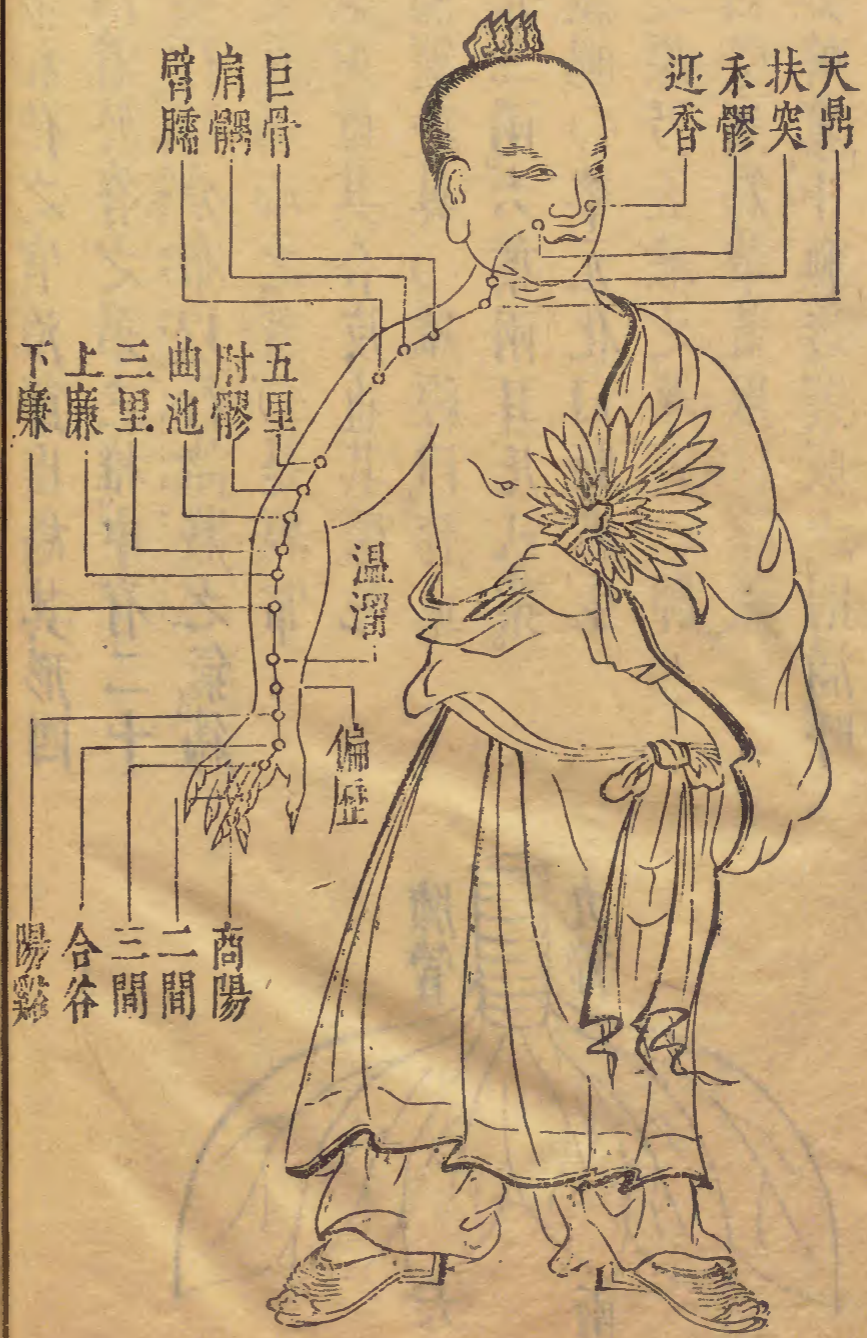 天鼎
扶突
禾髎
迎香
巨骨
肩髃
臂臑
五里
肘髎
曲池
三里
上廉
下廉
温溜
偏歴
商陽
二間
三間
合谷
陽谿